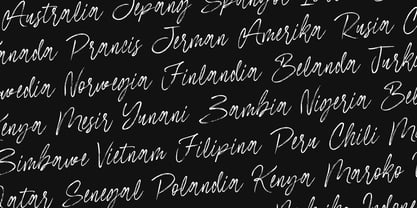 Australia Jepang Spanyol
anada Prancis Jerman Amerika Rusia C
wedia Norwegia Finlandia Belanda Turk
enya Mesir Yunani Zambia Nigeria Be
Bimbawe Vietnam Filipina Peru Chili M
Qatar Senegal Polandia Kenya Maroko